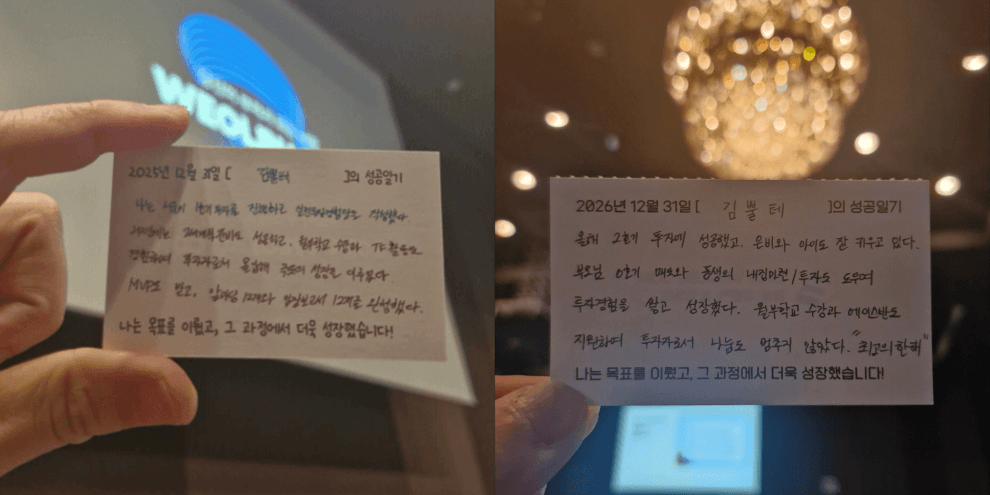 WEOL
2025년 12월 31일 [ 김뿔테 ]의 성공일기
나는 서울에 1호기 투자를 진행하고 실전투자경험담을 작성했다.
성공하고, 월부학교 수강과 TF활동도
투자자로서 올 한해 성장을 이루었다.
MVP도 받고, 앞마당 12개와 임장보고서 12개를 완성했다.
나는 목표를 이뤘고, 그 과정에서 더욱 성장했습니다!
2026년 12월 31일 [ 김뿔테 ]의 성공일기
올해 2호기 투자에 성공했고, 은비와 아이도 잘 키우고 있다.
부모님 0호기 매도와 동생의 내집마련/투자도 도우며
투자경험을 쌓고 성장했다. 월부학교 수강과 에이스반도
지원하며 투자자로서 나눔도 멈추지 않았다. "최고의 한해"
나는 목표를 이뤘고, 그 과정에서 더욱 성장했습니다!